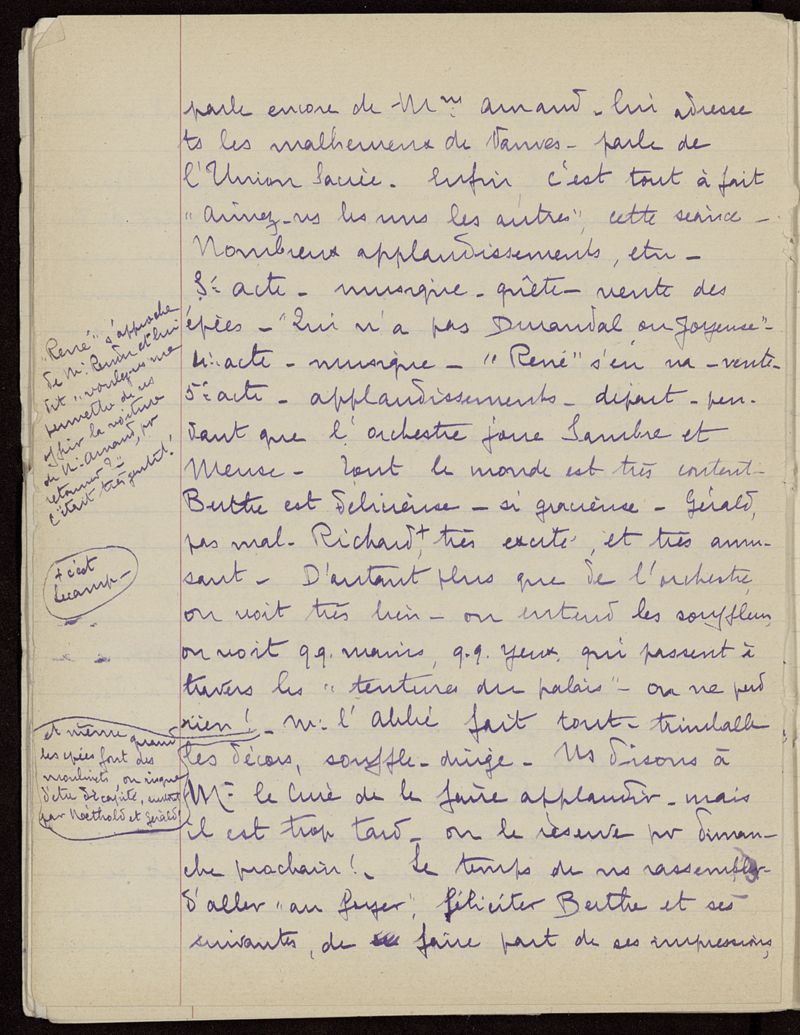 parle encore de Mme Arnaud - lui adresse
ts les malheureux de Vanves - parle de
l'Union Sacrée. Enfin, c'est tout à fait
"aimez-ns les uns les autres", cette séance -
Nombreux applaudissements, etc -
3e acte - musique - quête - vente des
épées - "Qui n'a pas Durandal ou Joyeuse" -
4e acte - musique - "René" s'en va - vente -
5e acte - applaudissements - départ - pen-
dant que l'orchestre joue Sambre et
Meuse - Tout le monde est très content -
Berthe est délicieuse - si gracieuse - Gérald,
pas mal - Richard +, très excité, et très amu-
sant - D'autant plus que de l'orchestre,
on voit très bien - on entend les souffleurs,
on voit qq. mains, q.q. yeux, qui passent à
travers les "tentures du palais" - on ne perd
rien ! - Mr l'Abbé fait tout - trimballe
les décors, souffle - dirige - Ns disons à
Mr le Curé de le faire applaudir - mais
il est trop tard - on le réserve pr diman-
che prochain ! - Le temps de ns rassembler -
d'aller "au foyer", féliciter Berthe et ses
suivantes, de faire part de ses impressions,
"René" s'approche
de Mr et lui
dit "voulez-vs me
permettre de vs
offrir la voiture
de Mr Arnaud, pr
retourner ?"
C'était très gentil !
+ c'est
Lecamp -
et même quand
les épées font des
moulinets, on risque
d'être décapité, surtout
par et Gérald !